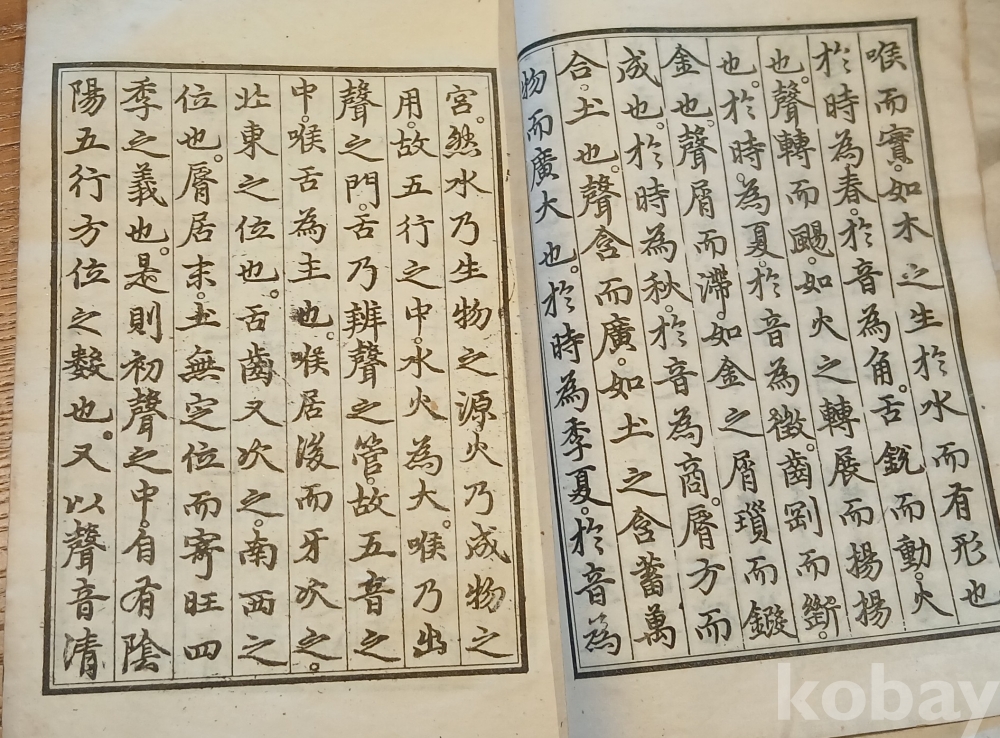 喉而實。如木之生於水而有形也
於時為春。於音為角。舌銳而動。火
也。聲轉而颺。如火之轉展而揚揚
也。於時為夏。於音為徵。齒剛而斷。
金也。聲屑而滯。如金之屑瑣而鍛
成也。於時為秋。於音為商。脣方而
合。土也。聲含而廣。如土之含蓄萬
物而廣大也。於時為季夏。於音為
宮。然水乃生物之源。火乃成物之
用。故五行之中。水火為大。喉乃出
聲之門。舌乃辨聲之管。故五音之
中。喉舌為主也。喉居後而牙次之。
北東之位也。舌齒又次之。南西之
位也。脣居末。土無定位而寄旺四
季之義也。是則初聲之中。自有陰
陽五行方位之數也。又以聲音清
kobay